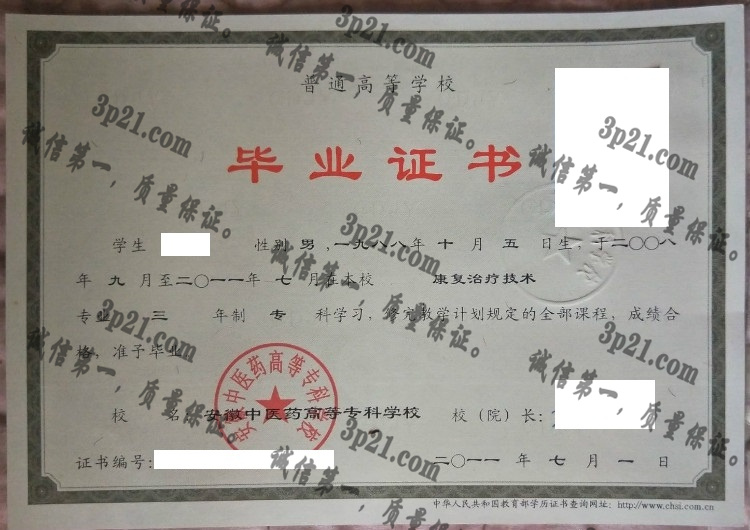 普通高等学校
毕业证书
学生 性别 男 ,一九八八年 十 月 五 日生,于二〇〇八
年 九 月至二〇一一年 七 月在本校 康复治疗技术
专业 三 年制 专 科学习,修完教学计划规定的全部课程,成绩合
格,准予毕业。
校 名:安徽中医药高等专科学校 校(院)长:
证书编号: 二〇一一 年 七 月 一 日
中华人民共和国教育部学历证书查询网址: http://www.chsi.com.cn
安徽中医药高等专科学校
3p21.com
诚信第一,质量保证。
3p21.com
诚信第一,质量保证。
3p21.com
诚信第一,质量保证。
3p21.com
诚信第一,质量保证。
3p21.com
诚信第一,质量保证。
3p21.com
诚信第一,质量保证。
3p21.com
诚信第一,质量保证。
3p21.com
诚信第一,质量保证。